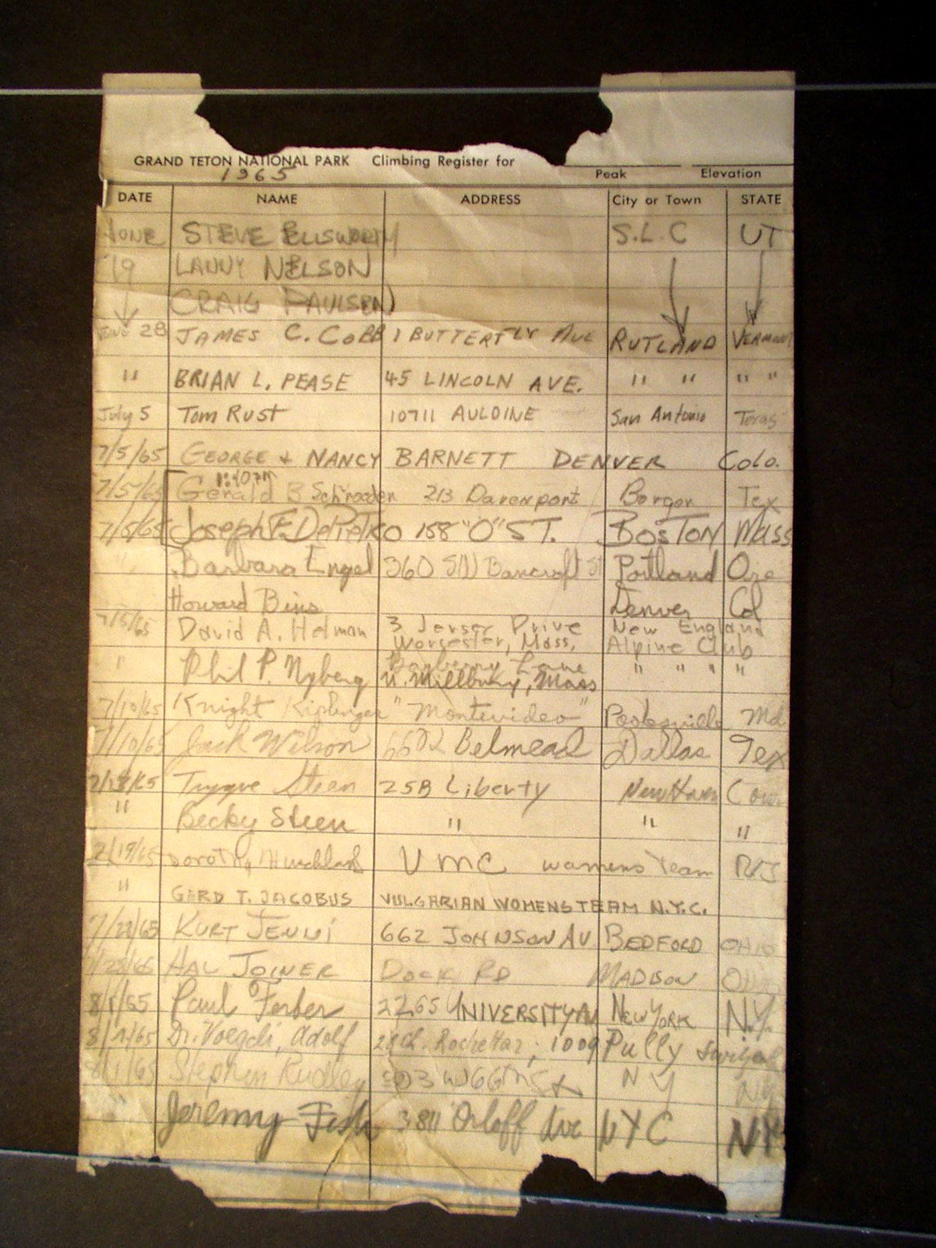 GRAND TETON NATIONAL PARK Climbing Register for
1965 Peak Elevation
DATE NAME ADDRESS City or Town STATE
JUNE STEVE ELLSWORTH S.L.C UT
19 LANNY NELSON
CRAIG PAULSEN
28 JAMES C. COBB 1 BUTTERFLY AVE RUTLAND VERMONT
" BRIAN L. PEASE 45 LINCOLN AVE. " " " "
July 5 Tom Rust 10711 AULDINE San Antonio Texas
7/5/65 GEORGE & NANCY BARNETT DENVER Colo.
1:40 PM
7/5/65 Gerald B Schroeder 213 Davenport Borger Tex
7/5/65 Joseph F. 158 "O" ST. BOSTON Mass
Barbara Engel 360 SW Bancroft St Portland Ore
Howard Bins Denver Col
7/5/65 David A. Helman 3 Jerser Drive New England
Worcester, Mass. Alpine Club
" Phil P. Nyberg Bayberry Lane " " " "
N. Millbury, Mass
7/10/65 Knight Kiplinger "Montevideo" Poolesville Md.
7/10/65 Jack Wilson Belmead Dallas Tex
Trygve Steen 25B Liberty New Haven Conn
" Becky Steen " " "
Dorothy VMC womens Team NJ
" GERD T. JACOBUS VULGARIAN WOMENS TEAM N.Y.C.
7/28/65 KURT JENNI 662 JOHNSON AV BEDFORD OHIO
7/28/65 HAL JOINER DOCK RD MADISON OHIO
8/1/65 Paul Ferber 2265 UNIVERSITY AV NEW YORK N.Y.
8/1/65 Dr. Voegeli, Adolf 1009 Pully
8/1/65 Stephen NY NY
Jeremy Fish 3811 Orloff Ave NYC NY